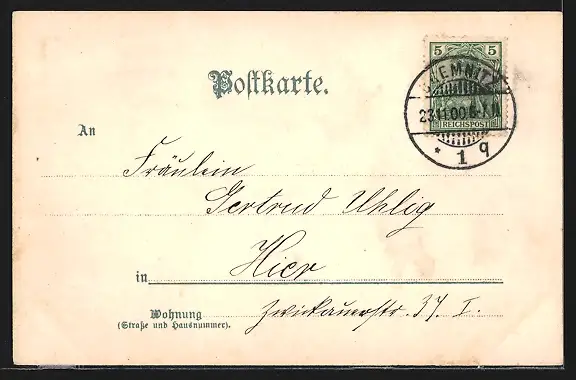 Postkarte.
5 5
REICHSPOST
CHEMNITZ
23.11.00.6-7N
* 1 q
An
Fräulein
Gertrud Uhlig
in Hier
Wohnung
(Straße und Hausnummer).
Zwickauerstr. 37. I.